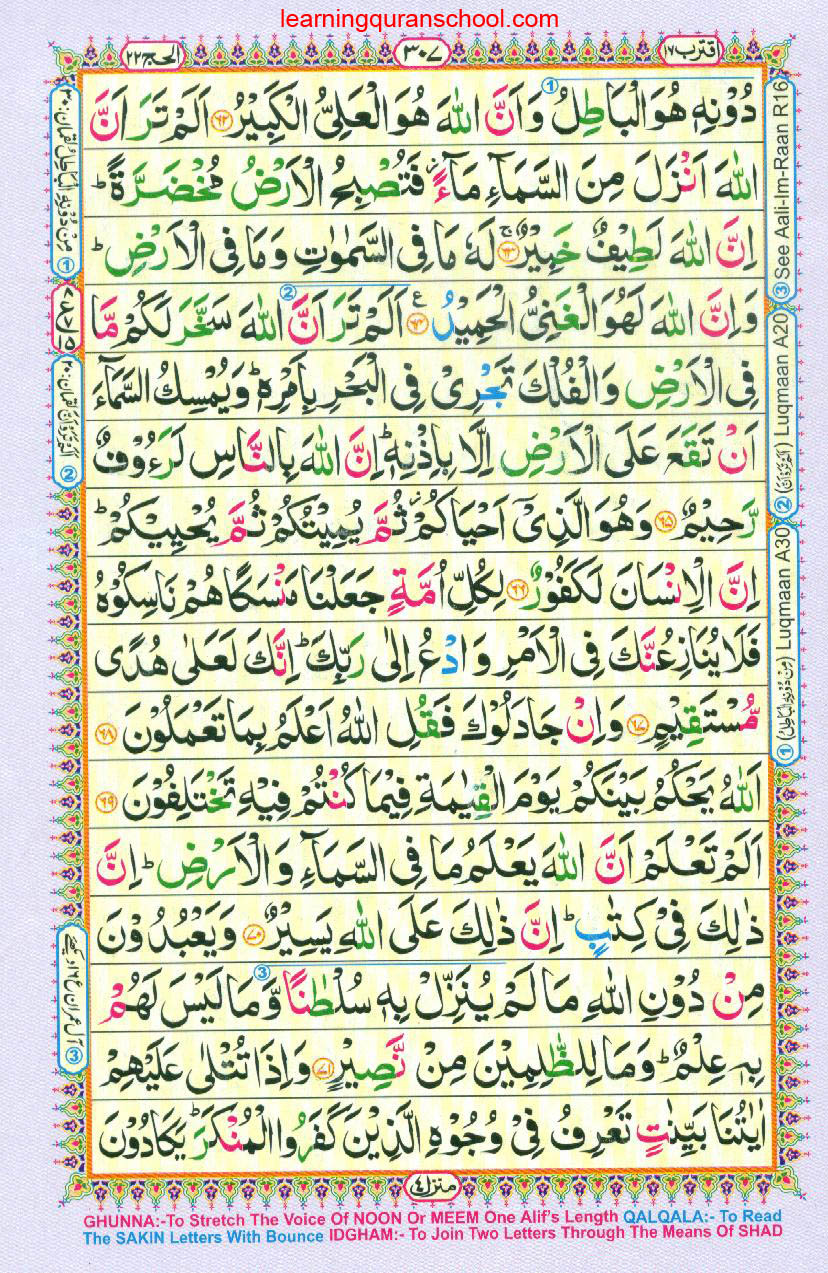 learningquranschool.com
اقترب ١٧
٣٠٧
الحج ٢٢
دُوْنِهٖ هُوَ الْبَاطِلُ وَاَنَّ اللّٰهَ هُوَ الْعَلِىُّ الْكَبِيْرُ ﴿۶۲﴾ اَلَمْ تَرَ اَنَّ
اللّٰهَ اَنْزَلَ مِنَ السَّمَآءِ مَآءً فَتُصْبِحُ الْاَرْضُ مُخْضَرَّةً ؕ
اِنَّ اللّٰهَ لَطِيْفٌ خَبِيْرٌ ﴿۶۳﴾ لَهٗ مَا فِى السَّمٰوٰتِ وَمَا فِى الْاَرْضِ ؕ
وَاِنَّ اللّٰهَ لَهُوَ الْغَنِىُّ الْحَمِيْدُ ﴿۶۴﴾ اَلَمْ تَرَ اَنَّ اللّٰهَ سَخَّرَ لَكُمْ مَّا
فِى الْاَرْضِ وَالْفُلْكَ تَجْرِىْ فِى الْبَحْرِ بِاَمْرِهٖ ؕ وَيُمْسِكُ السَّمَآءَ
اَنْ تَقَعَ عَلَى الْاَرْضِ اِلَّا بِاِذْنِهٖ ؕ اِنَّ اللّٰهَ بِالنَّاسِ لَرَءُوْفٌ
رَّحِيْمٌ ﴿۶۵﴾ وَهُوَ الَّذِىْۤ اَحْيَاكُمْ ثُمَّ يُمِيْتُكُمْ ثُمَّ يُحْيِيْكُمْ ؕ
اِنَّ الْاِنْسَانَ لَكَفُوْرٌ ﴿۶۶﴾ لِكُلِّ اُمَّةٍ جَعَلْنَا مَنْسَكًا هُمْ نَاسِكُوْهُ
فَلَا يُنَازِعُنَّكَ فِى الْاَمْرِ وَادْعُ اِلٰى رَبِّكَ ؕ اِنَّكَ لَعَلٰى هُدًى
مُّسْتَقِيْمٍ ﴿۶۷﴾ وَاِنْ جَادَلُوْكَ فَقُلِ اللّٰهُ اَعْلَمُ بِمَا تَعْمَلُوْنَ ﴿۶۸﴾
اَللّٰهُ يَحْكُمُ بَيْنَكُمْ يَوْمَ الْقِيٰمَةِ فِيْمَا كُنْتُمْ فِيْهِ تَخْتَلِفُوْنَ ﴿۶۹﴾
اَلَمْ تَعْلَمْ اَنَّ اللّٰهَ يَعْلَمُ مَا فِى السَّمَآءِ وَالْاَرْضِ ؕ اِنَّ
ذٰلِكَ فِىْ كِتٰبٍ ؕ اِنَّ ذٰلِكَ عَلَى اللّٰهِ يَسِيْرٌ ﴿۷۰﴾ وَيَعْبُدُوْنَ
مِنْ دُوْنِ اللّٰهِ مَا لَمْ يُنَزِّلْ بِهٖ سُلْطٰنًا وَّمَا لَيْسَ لَهُمْ
بِهٖ عِلْمٌ ؕ وَمَا لِلظّٰلِمِيْنَ مِنْ نَّصِيْرٍ ﴿۷۱﴾ وَاِذَا تُتْلٰى عَلَيْهِمْ
اٰيٰتُنَا بَيِّنٰتٍ تَعْرِفُ فِىْ وُجُوْهِ الَّذِيْنَ كَفَرُوا الْمُنْكَرَ ؕ يَكَادُوْنَ
③ See Aali-Im-Raan R16
② Luqmaan A20
① Luqmaan A30
منزل ٤
GHUNNA:-To Stretch The Voice Of NOON Or MEEM One Alif's Length QALQALA:- To Read
The SAKIN Letters With Bounce IDGHAM:- To Join Two Letters Through The Means Of SHAD